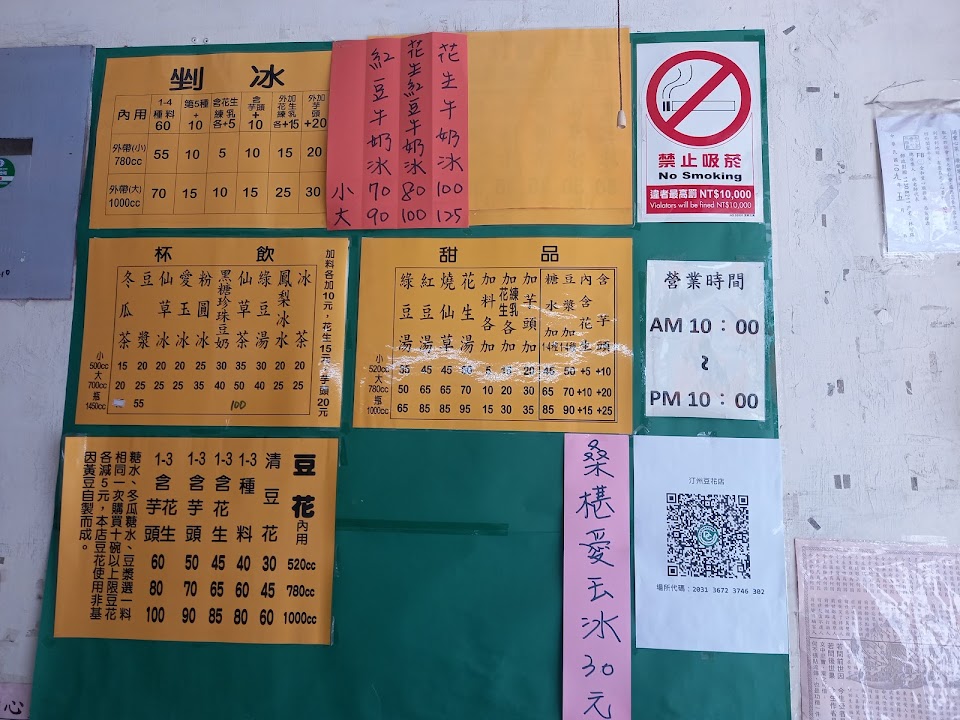 剉冰
內用 1-4種料60 第5種+10 含花生練乳各+5 含芋頭+10 外加花生練乳各+15 外加芋頭+20
外帶(小)780cc 55 10 5 10 15 20
外帶(大)1000cc 70 15 10 15 25 30
紅豆牛奶冰 花生紅豆牛奶冰 花生牛奶冰
小 70 80 100
大 90 100 125
禁止吸菸
No Smoking
違者最高罰 NT$10,000
Violators will be fined NT$10,000
杯飲
冬瓜茶 豆漿 仙草冰 愛玉冰 粉圓冰 黑糖珍珠豆奶 仙草茶 綠豆湯 鳳梨冰水 冰茶
小500cc 15 20 20 20 25 40 30 35 20 20
大700cc 20 25 25 25 35 50 40 25 25
瓶1450cc 55 100
加料各加10元，花生15元，芋頭20元
甜品
綠豆湯 紅豆湯 燒仙草 花生湯 加料各加 加花生練乳各加 加芋頭加 糖水加 豆漿加 內含花生 含芋頭
小520cc 35 45 45 60 5 15 20 45 50 +5 +10
大780cc 50 65 65 70 10 20 30 65 70 +10 +20
瓶1000cc 65 85 85 95 15 30 35 85 90 +15 +25
營業時間
AM 10：00
~
PM 10：00
豆花
內用
清豆花 1-3種料 1-3含花生 1-3含芋頭 1-3含芋頭花生
520cc 30 40 45 50 60
780cc 45 60 65 70 80
1000cc 60 80 85 90 100
糖水、冬瓜糖水、豆漿選一料
相同一次購買十碗以上限豆花
各減5元，本店豆花使用非基
因黃豆自製而成。
桑椹愛玉冰30元
汀州豆花店
場所代碼：2031 3672 3746 302
心